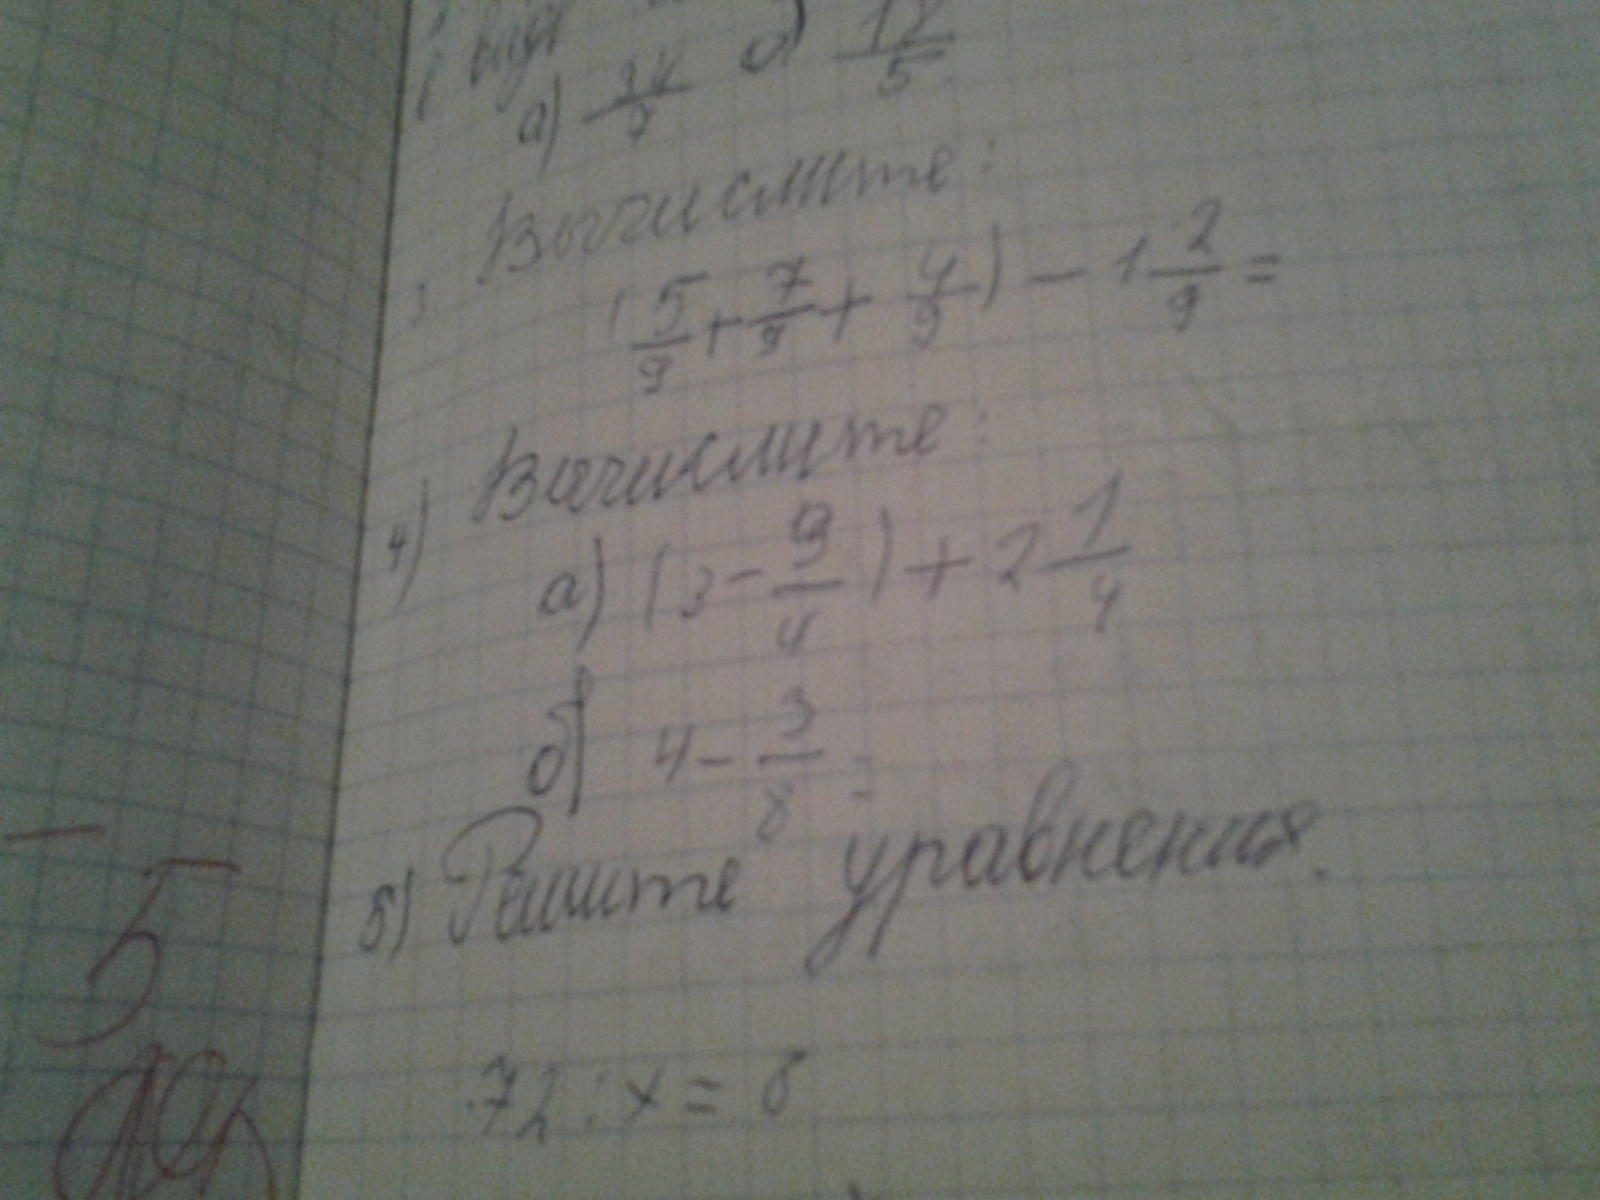 вида
а) 34/9 б) 12/5
3. Вычислите:
(5/9 + 7/9 + 4/9) - 1 2/9 =
4) Вычислите:
а) (3 - 9/4) + 2 1/4
б) 4 - 3/8 =
5) Решите уравнения.
72 : x = 8
5